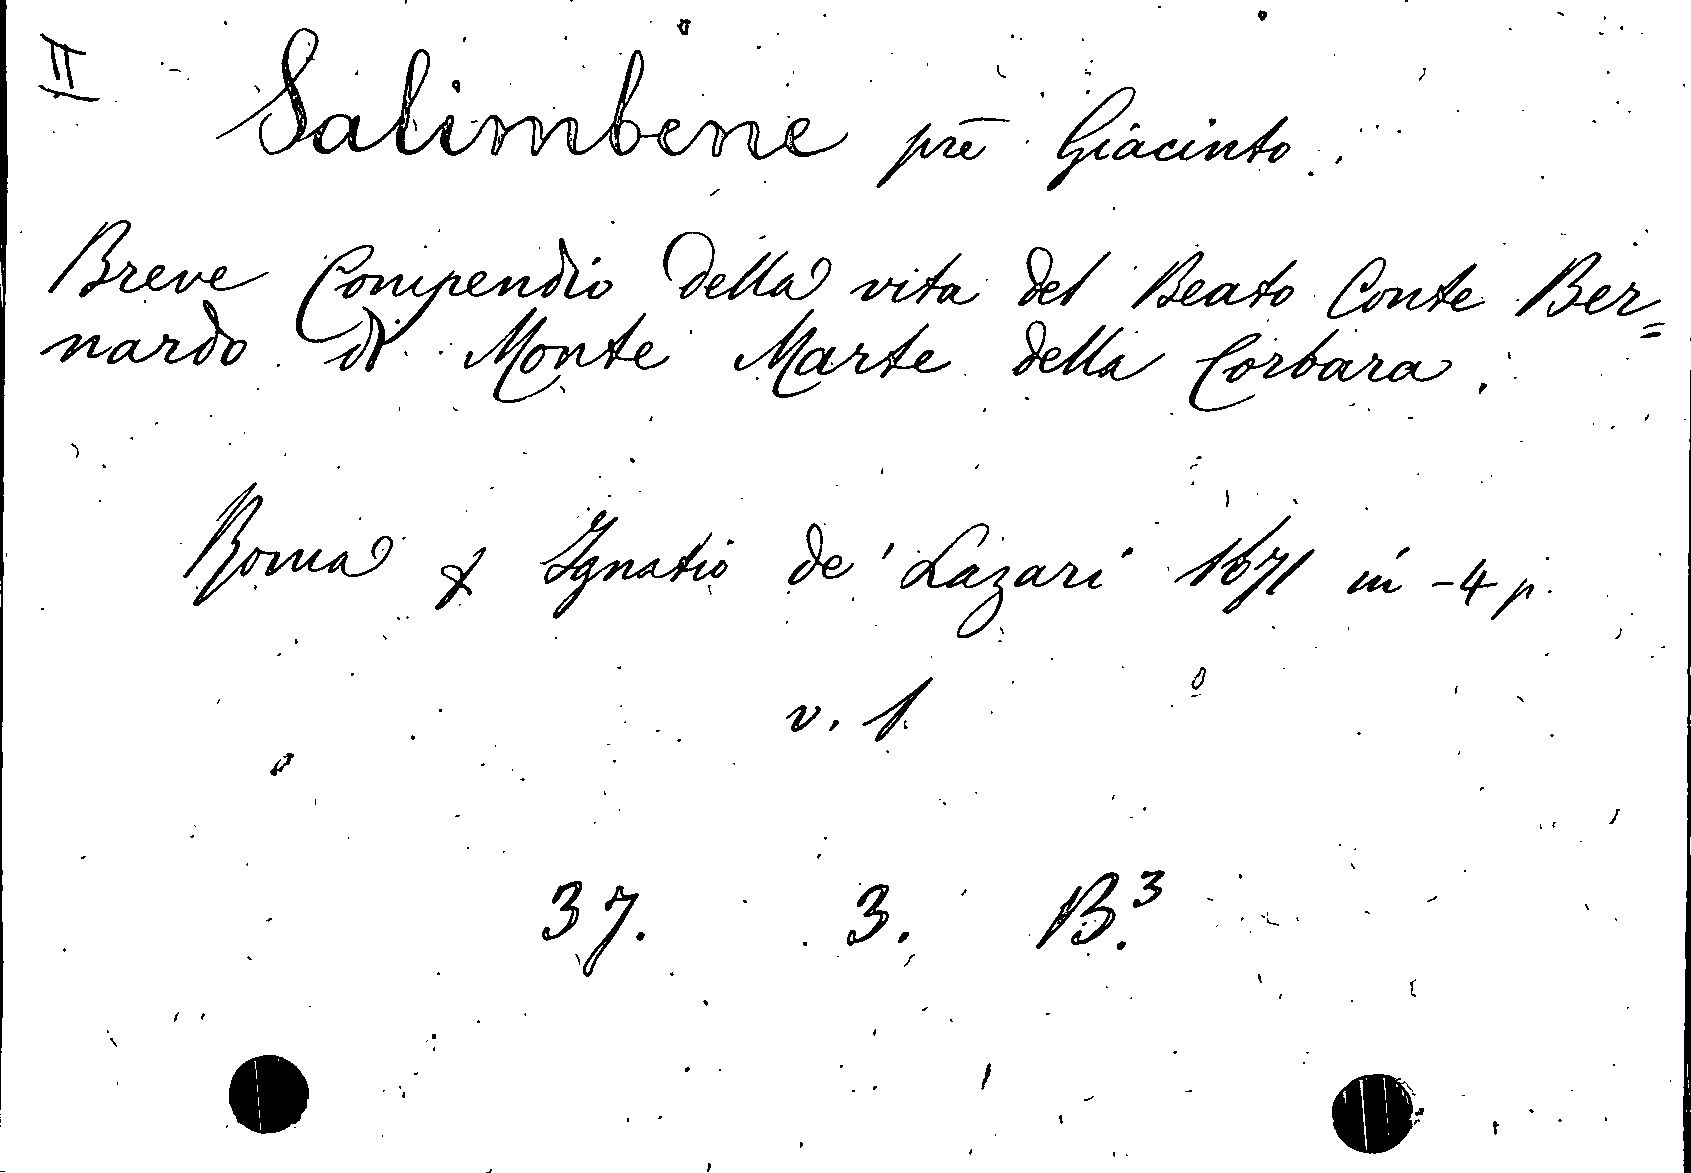 II
Salimbene prē Giacinto.
Breve Compendio della vita del Beato Conte Ber=
nardo di Monte Marte della Corbara.
Roma Ignatio de' Lazari 1671 in-4 p.
v. 1
37. 3. B.³